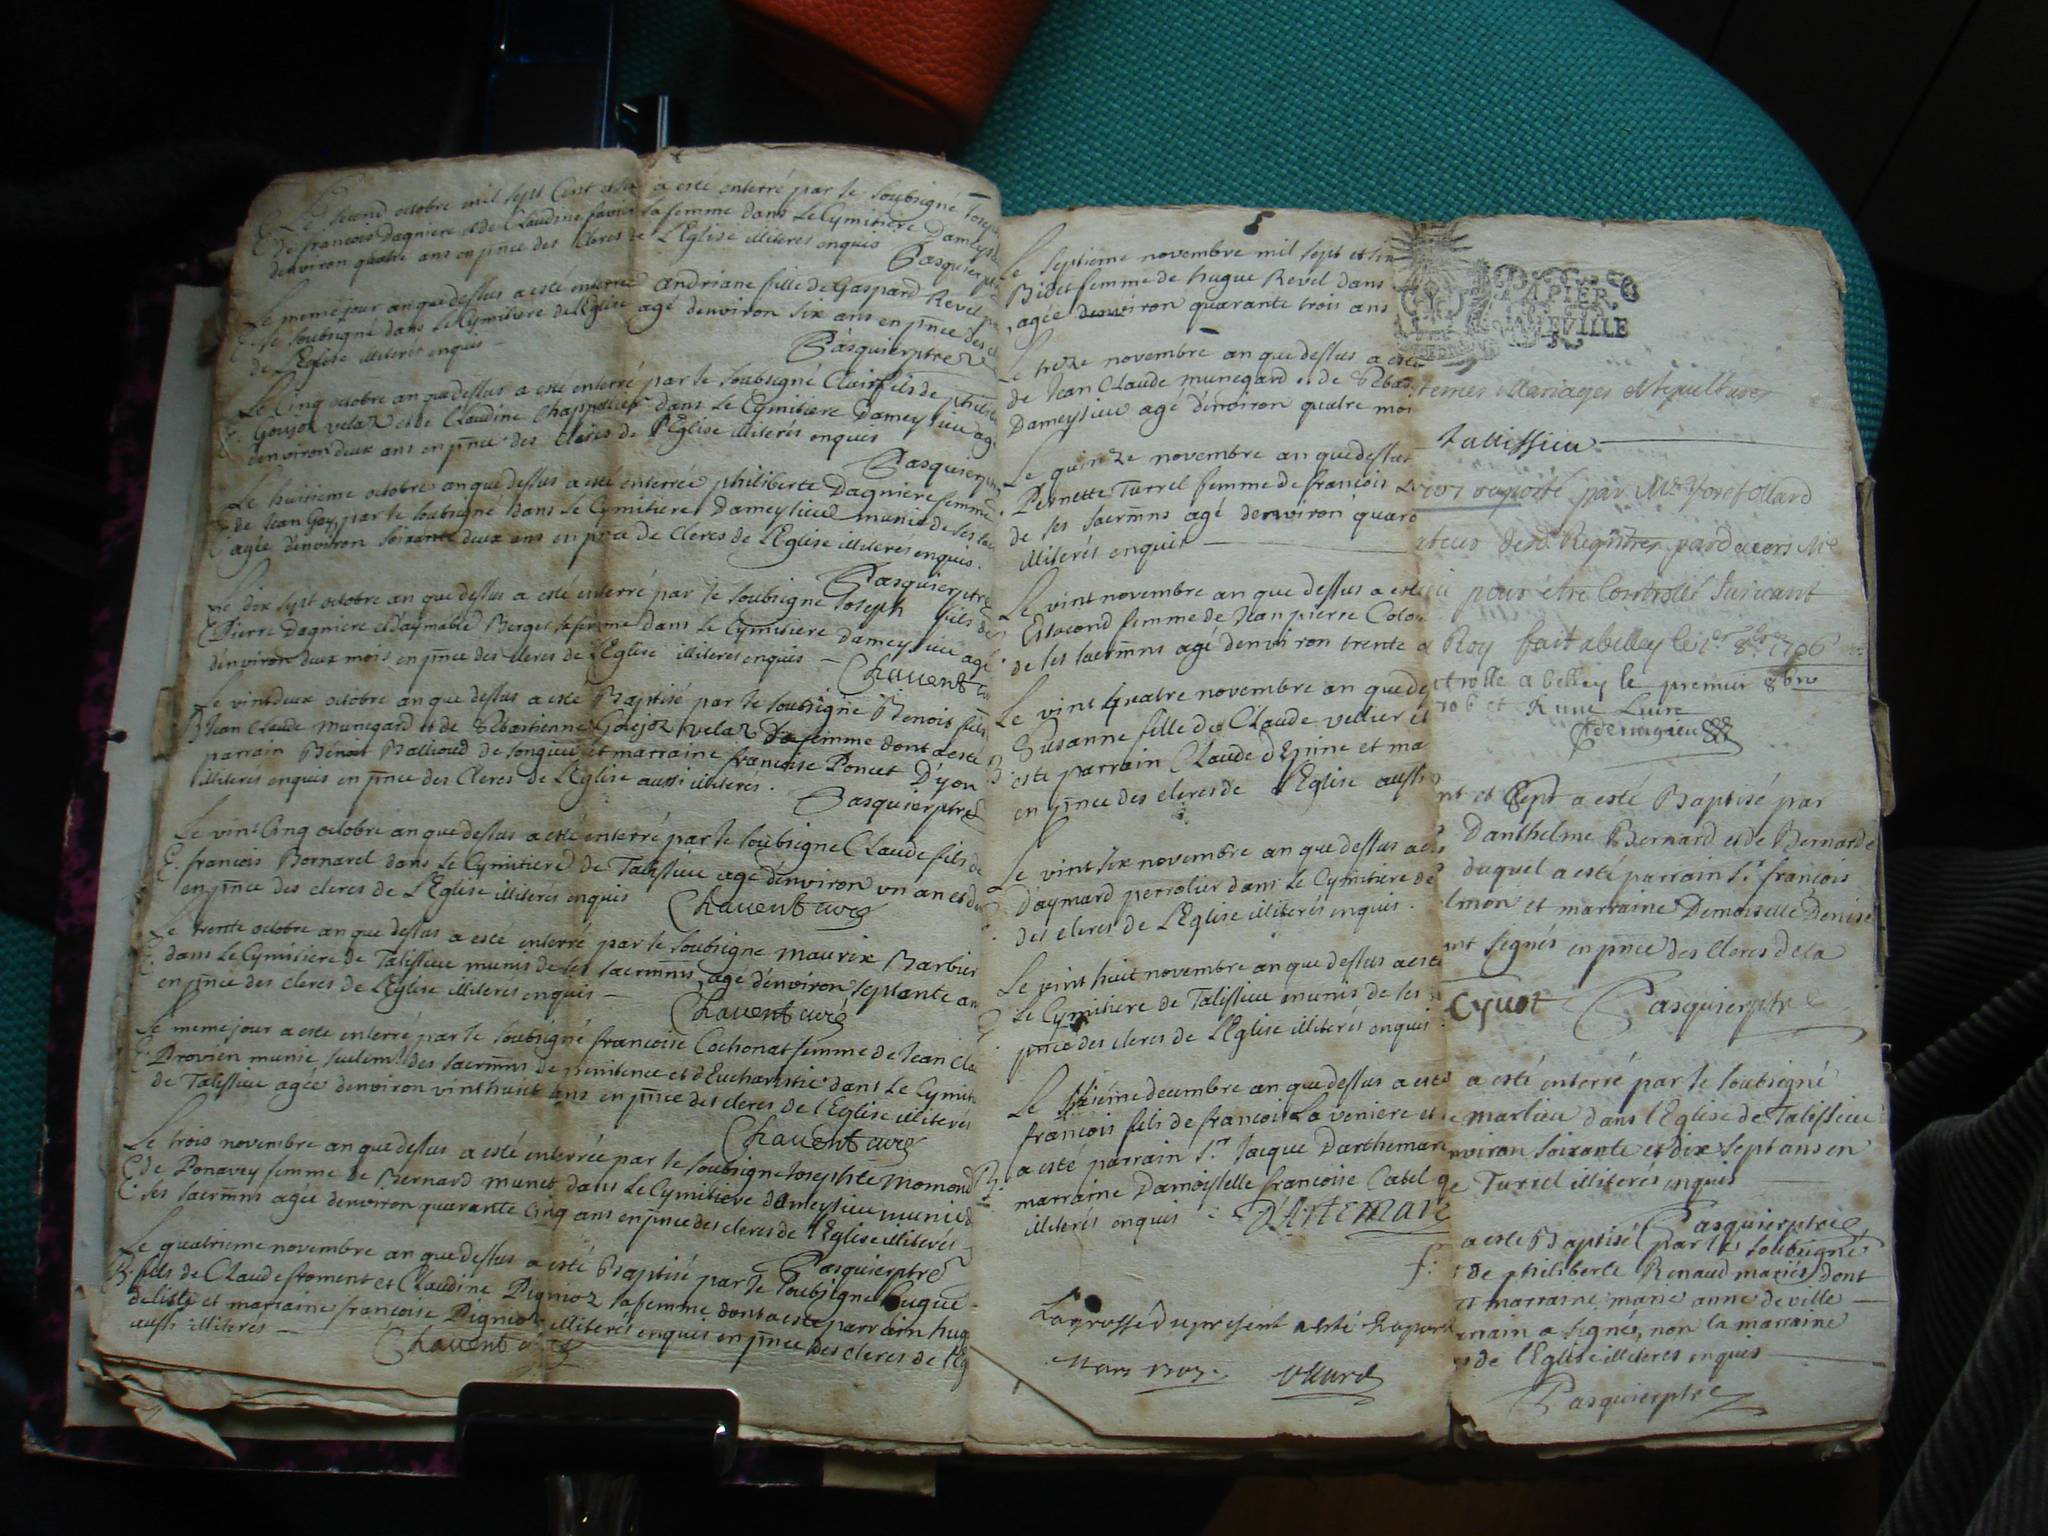 Le second octobre mil sept Cent et six a esté enterré par le soubsigné Joseph
E. de francois Dagniere et de Claudine favier sa femme dans Le Cymitiere Dameysieu
denviron quatre ans en pnce des Cleres de L'Eglise illiterés enquis
Pasquier ptre
Le meme jour an que dessus a esté enterrée andriane fille de Gaspard Revel par
E. le soubsigné dans le Cymitiere de l'Eglise agé denviron six ans en pnce des cl
de L'Eglise illiterés enquis
Pasquier ptre
Le Cinq octobre an que dessus a esté enterré par le soubsigné Clair fils de philib
E. Goujoz velaz et de Claudine Chappellus dans Le Cymitiere Dameysieu agé
denviron deux ans en pnce des cleres de l'Eglise illiterés enquis
Pasquier ptre
Le huitieme octobre an que dessus a esté enterrée philiberte Dagniere femme
E. de Jean Goy, par le soubsigné dans Le Cymitiere Dameysieu munie de ses sac
agée denviron soixante deux ans en pnce de Cleres de L'Eglise illiterés enquis.
Pasquier ptre
Le dix sept octobre an que dessus a esté enterré par le soubsigné Joseph fils de
E. Pierre Dagniere et d'aymable Berget sa femme dans Le Cymitiere dameysieu agé
denviron deux mois en pnce des cleres de l'Eglise illiterés enquis
Chavent curé
Le vint deux octobre an que dessus a esté Baptisé par le soubsigné Benoit fils
B. Jean Claude Munegard et de Sébastienne Goujoz velaz sa femme dont a esté
parrain Benoit Ballioud de songieu et marraine francoise Poncet D'yon
illiterés enquis en pnce des Cleres de L'Eglise aussi illiterés.
Pasquier ptre
Le vint Cinq octobre an que dessus a esté enterré par le soubsigné Claude fils de
E. francois Bornarel dans Le Cymitiere de Talissieu agé denviron vn an et d
en pnce des cleres de L'Eglise illiterés enquis
Chavent curé
Le trente octobre an que dessus a esté enterré par le soubsigné maurix Barbier
E. dans Le Cymitiere de Talissieu munis de ses sacrmns, agé denviron septante an
en pnce des cleres de L'Eglise illiterés enquis
Chavent curé
Le meme jour a esté enterré par le soubsigné francoise Cochonat femme de Jean Cla
E. Provien munie seulemt des sacrmns de penitence et d'Eucharistie dans Le Cymiti
de Talissieu agée denviron vint huict ans en pnce des cleres de l'Eglise illiterés
Chavent curé
Le trois novembre an que dessus a esté enterrée par le soubsigné Josephte momond
E. de Ponavey femme de Bernard munet dans Le Cymitiere dameysieu munie d
ses sacrmns agée denviron quarante Cinq ans en pnce des cleres de l'Eglise illiterés
Pasquier ptre
Le quatrieme novembre an que dessus a esté Baptisé par le soubsigné hugue
B. fils de Claude froment et Claudine Pignioz sa femme dont a esté parrain hug
delisle et marraine francoise Pignioz illiterés enquis en pnce des cleres de l'Eg
aussi illiterés
Chavent curé
Le septieme novembre mil sept et six
Bidet femme de hugue Revel dans
agée denviron quarante trois ans
Le treze novembre an que dessus a esté
de Jean Claude munegard et de Sébas
Dameysieu agé denviron quatre moi
Le quinze novembre an que dessus
Pernette Turrel femme de francois
de ses sacrmns agé denviron quara
illiterés enquis
Le vint novembre an que dessus a esté
Estocond femme de Jean pierre Colo
de ses sacrmns agé denviron trente
Le vint quatre novembre an que de
Susanne fille de Claude vellier et
B. esté parrain Claude d'Epine et ma
en pnce des cleres de l'Eglise aussi
Le vint six novembre an que dessus a es
D'aymard perrolier dans Le Cymitiere de
des cleres de L'Eglise illiterés enquis.
Le vint huit novembre an que dessus a esté
E. Le Cymitiere de Talissieu munis de ses
pnce des cleres de L'Eglise illiterés enquis
Le sixième decembre an que dessus a esté
francois fils de francois Laveniere et
B. a esté parrain Sr. Jacque Darthemar
marraine Damoiselle francoise Catel q
illiterés enquis
D'Artemare
La grosse du present a esté Raport
Mars 1707. Ollard
PAPIER
DE VILLE
temes Mariages et sepultures
Talissieu
raporté par Me. Josef ollard
ateur desd. Registres pardevers Me
pour être Controllés suivant
Roy fait a belley le 1er. 8bre 1706
trollé a belley le premier 8bre
706 et Livre
nt et sept a esté Baptisé par
Danthelme Bernard et de Bernarde
duquel a esté parrain Sr. francois
lmon et marraine Demoiselle Denise
ont signés en pnce des Cleres de la
Cyuot Pasquier ptre
a esté enterré par le soubsigné
e marlieu dans l'Eglise de Talissieu
nviron soixante et dix sept ans en
e Turrel illiterés enquis
Pasquier ptre
a esté Baptisé par le soubsigné
f. de philiberte Renaud mariés dont
et marraine marie anne deville
rrain a signés, non la marraine
s de l'Eglise illiterés enquis
Pasquier ptre